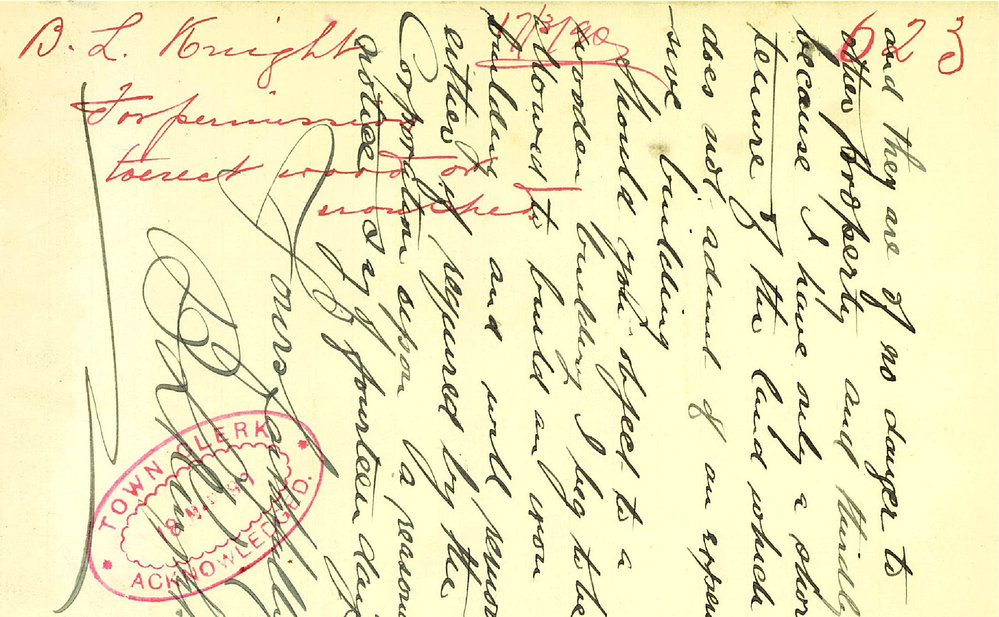 B. L. Knight
623
For permission
to erect wood or
and they are of no danger to
other property and thirdly
because I have only a shor
tenure of the land which
does not admit of an expen
sive building
Should you object to a
wooden building I beg to be
allowed to build an iron
building and will remov
either if required by the
Corporation upon a reason
notice say fourteen days
Yours faithfully
TOWN CLERK
18 MAR 99
ACKNOWLEDGED.